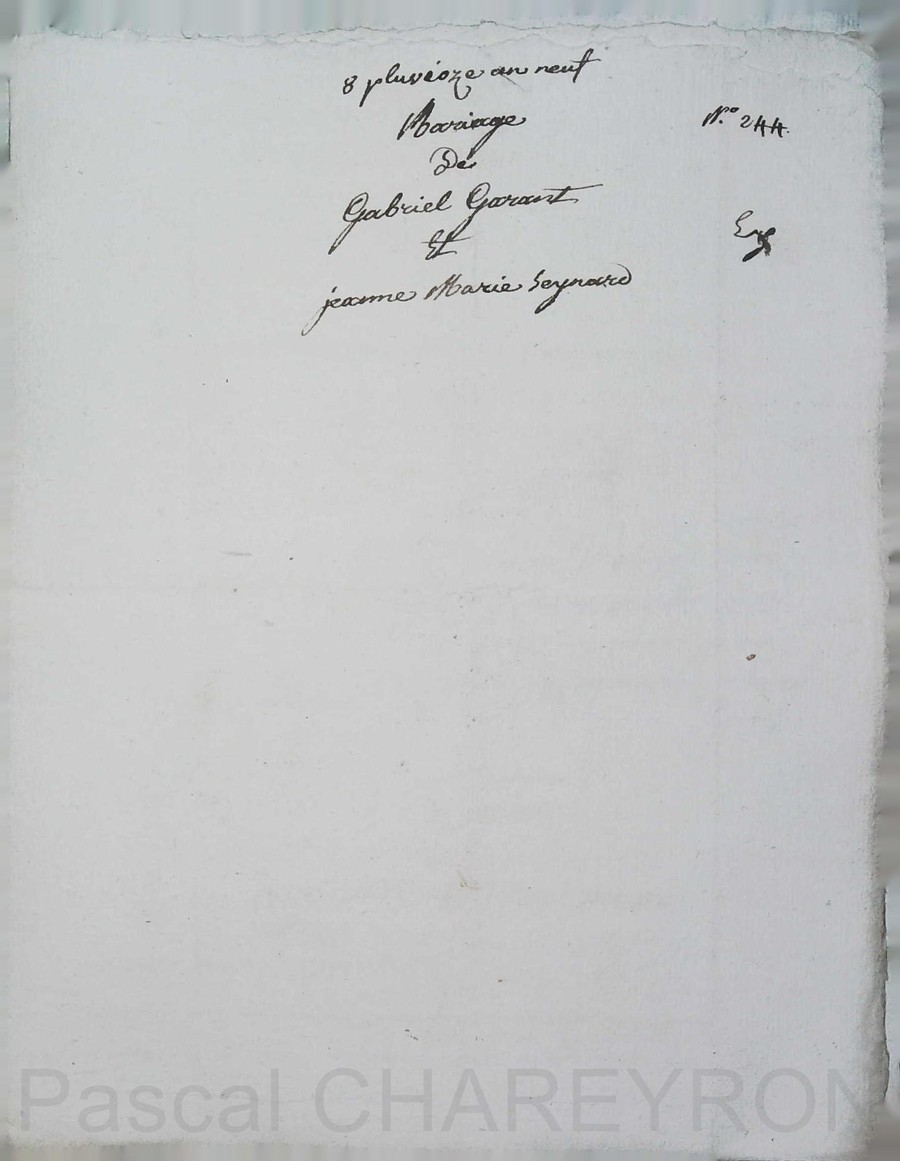 8 pluvioze an neuf
Mariage
De
Gabriel Garant
Et
jeanne Marie Seynard
N.º 244.
Pascal CHAREYRON